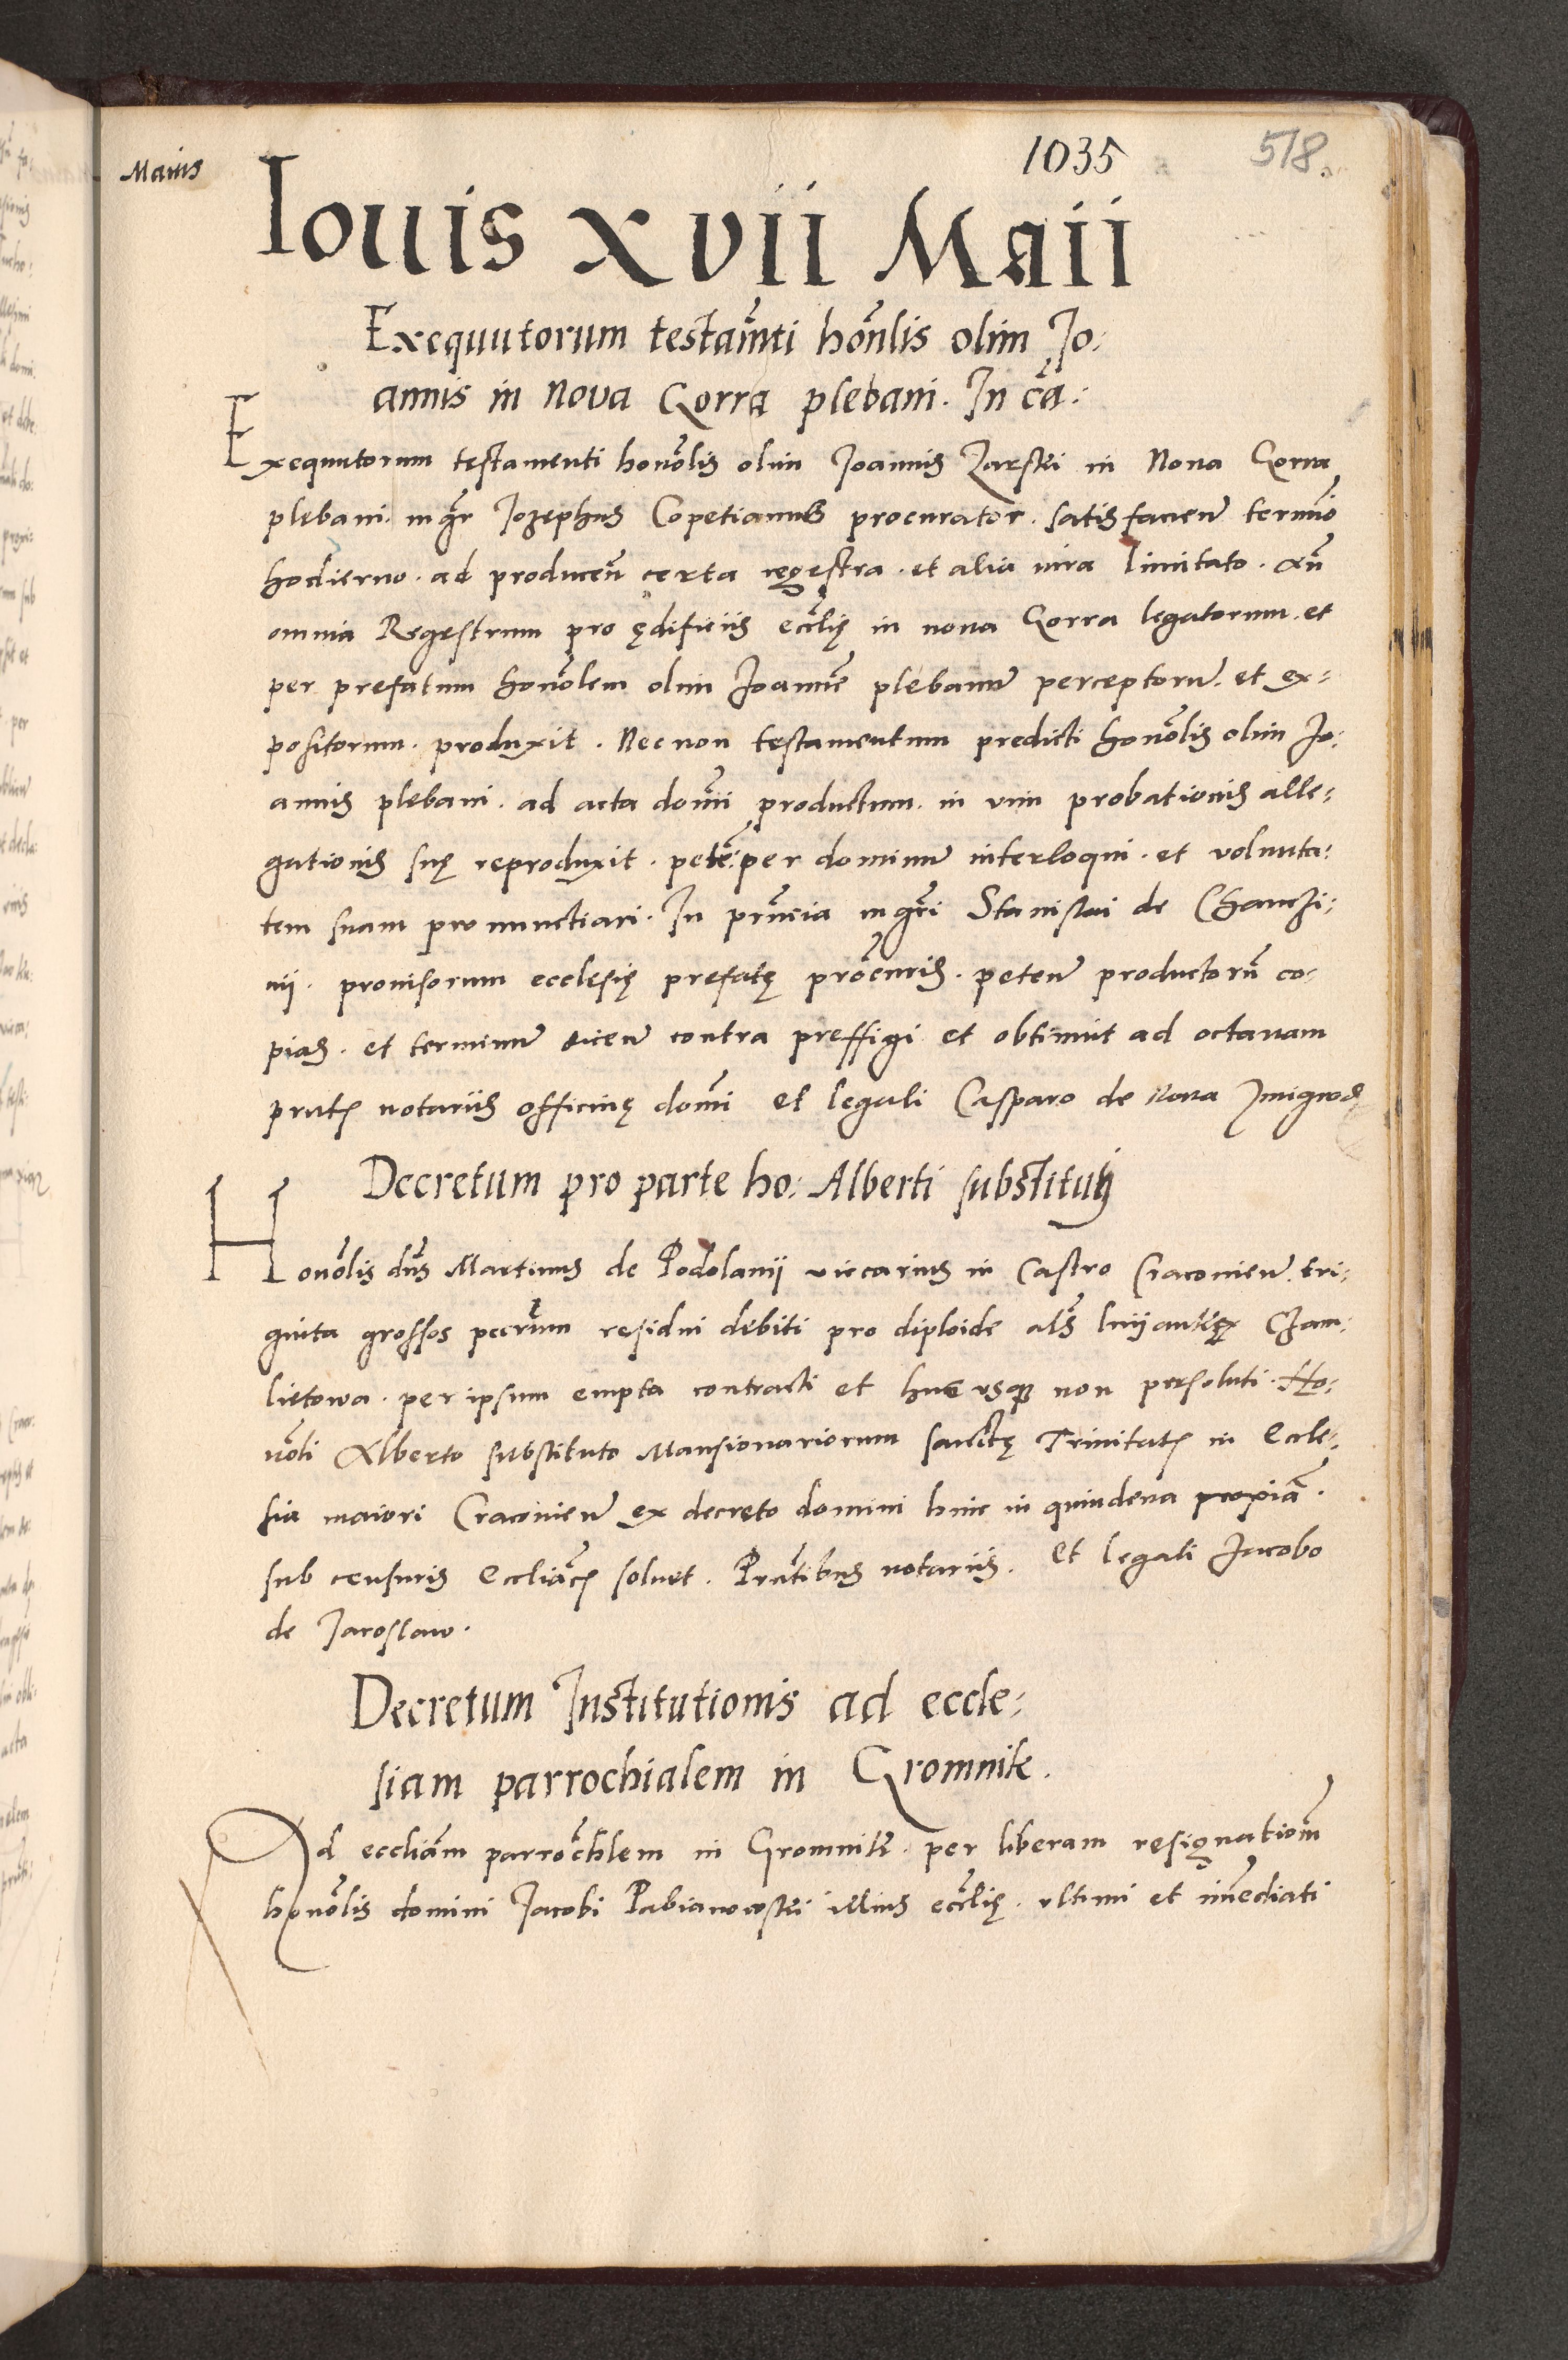 1035 518.
Maius
Iouis XVII Maii
Exequutorum testamti honlis olim Jo:
annis in Nova Gorra plebani. In ca:
Exequutorum testamenti honolis olim Joannis Zarski in Nova Gorra
plebani. mgr Jozephus Copetianus procurator. satisfacien termino
hodierno. ad producen certa regestra. et alia iura limitato.
omnia Regestrum pro ędificiis ecclię in nova Gorra legatorum. et
per prefatum honolem olim Joannem plebanum perceptorum. et ex:
positorum. produxit. Necnon testamentum predicti honolis olim Jo:
annis plebani. ad acta domini productum. in vim probationis alle:
gationis suę reproduxit. peten per dominum interloqui. et volunta:
tem suam pronunctiari. In prncia mgri Stanislai de Chanczi:
nii. provisorum ecclesię prefatę procuris. peten productorum co:
pias. et terminum dicen contra preffigi et obtinuit ad octavam
pntibus notariis officinę domini et legali Casparo de Nova
Decretum pro parte ho: Alberti substituti
Honolis dns Martinus de Podolanii viccarius in Castro Cracovien. tri:
ginta grossos pecuniarum residui debiti pro diploide als Czam:
lietowa. per ipsum empta contracti et huc usque non persoluti. Ho:
noli Alberto substituto Mansionariorum sanctę Trinitatis in Eccle:
sia maiori Cracovien ex decreto domini hinc in quindena proxima.
sub censuris Eccliacis solvet. Pntibus notariis. et legali Jacobo
de Jaroslaw.
Decretum Institutionis ad eccle:
siam parrochialem in Gromnik.
Ad eccliam parrochlem in Gromnik. per liberam resignationem
honolis domini Jacobi Pabianowski illius ecclię. ultimi et immediati